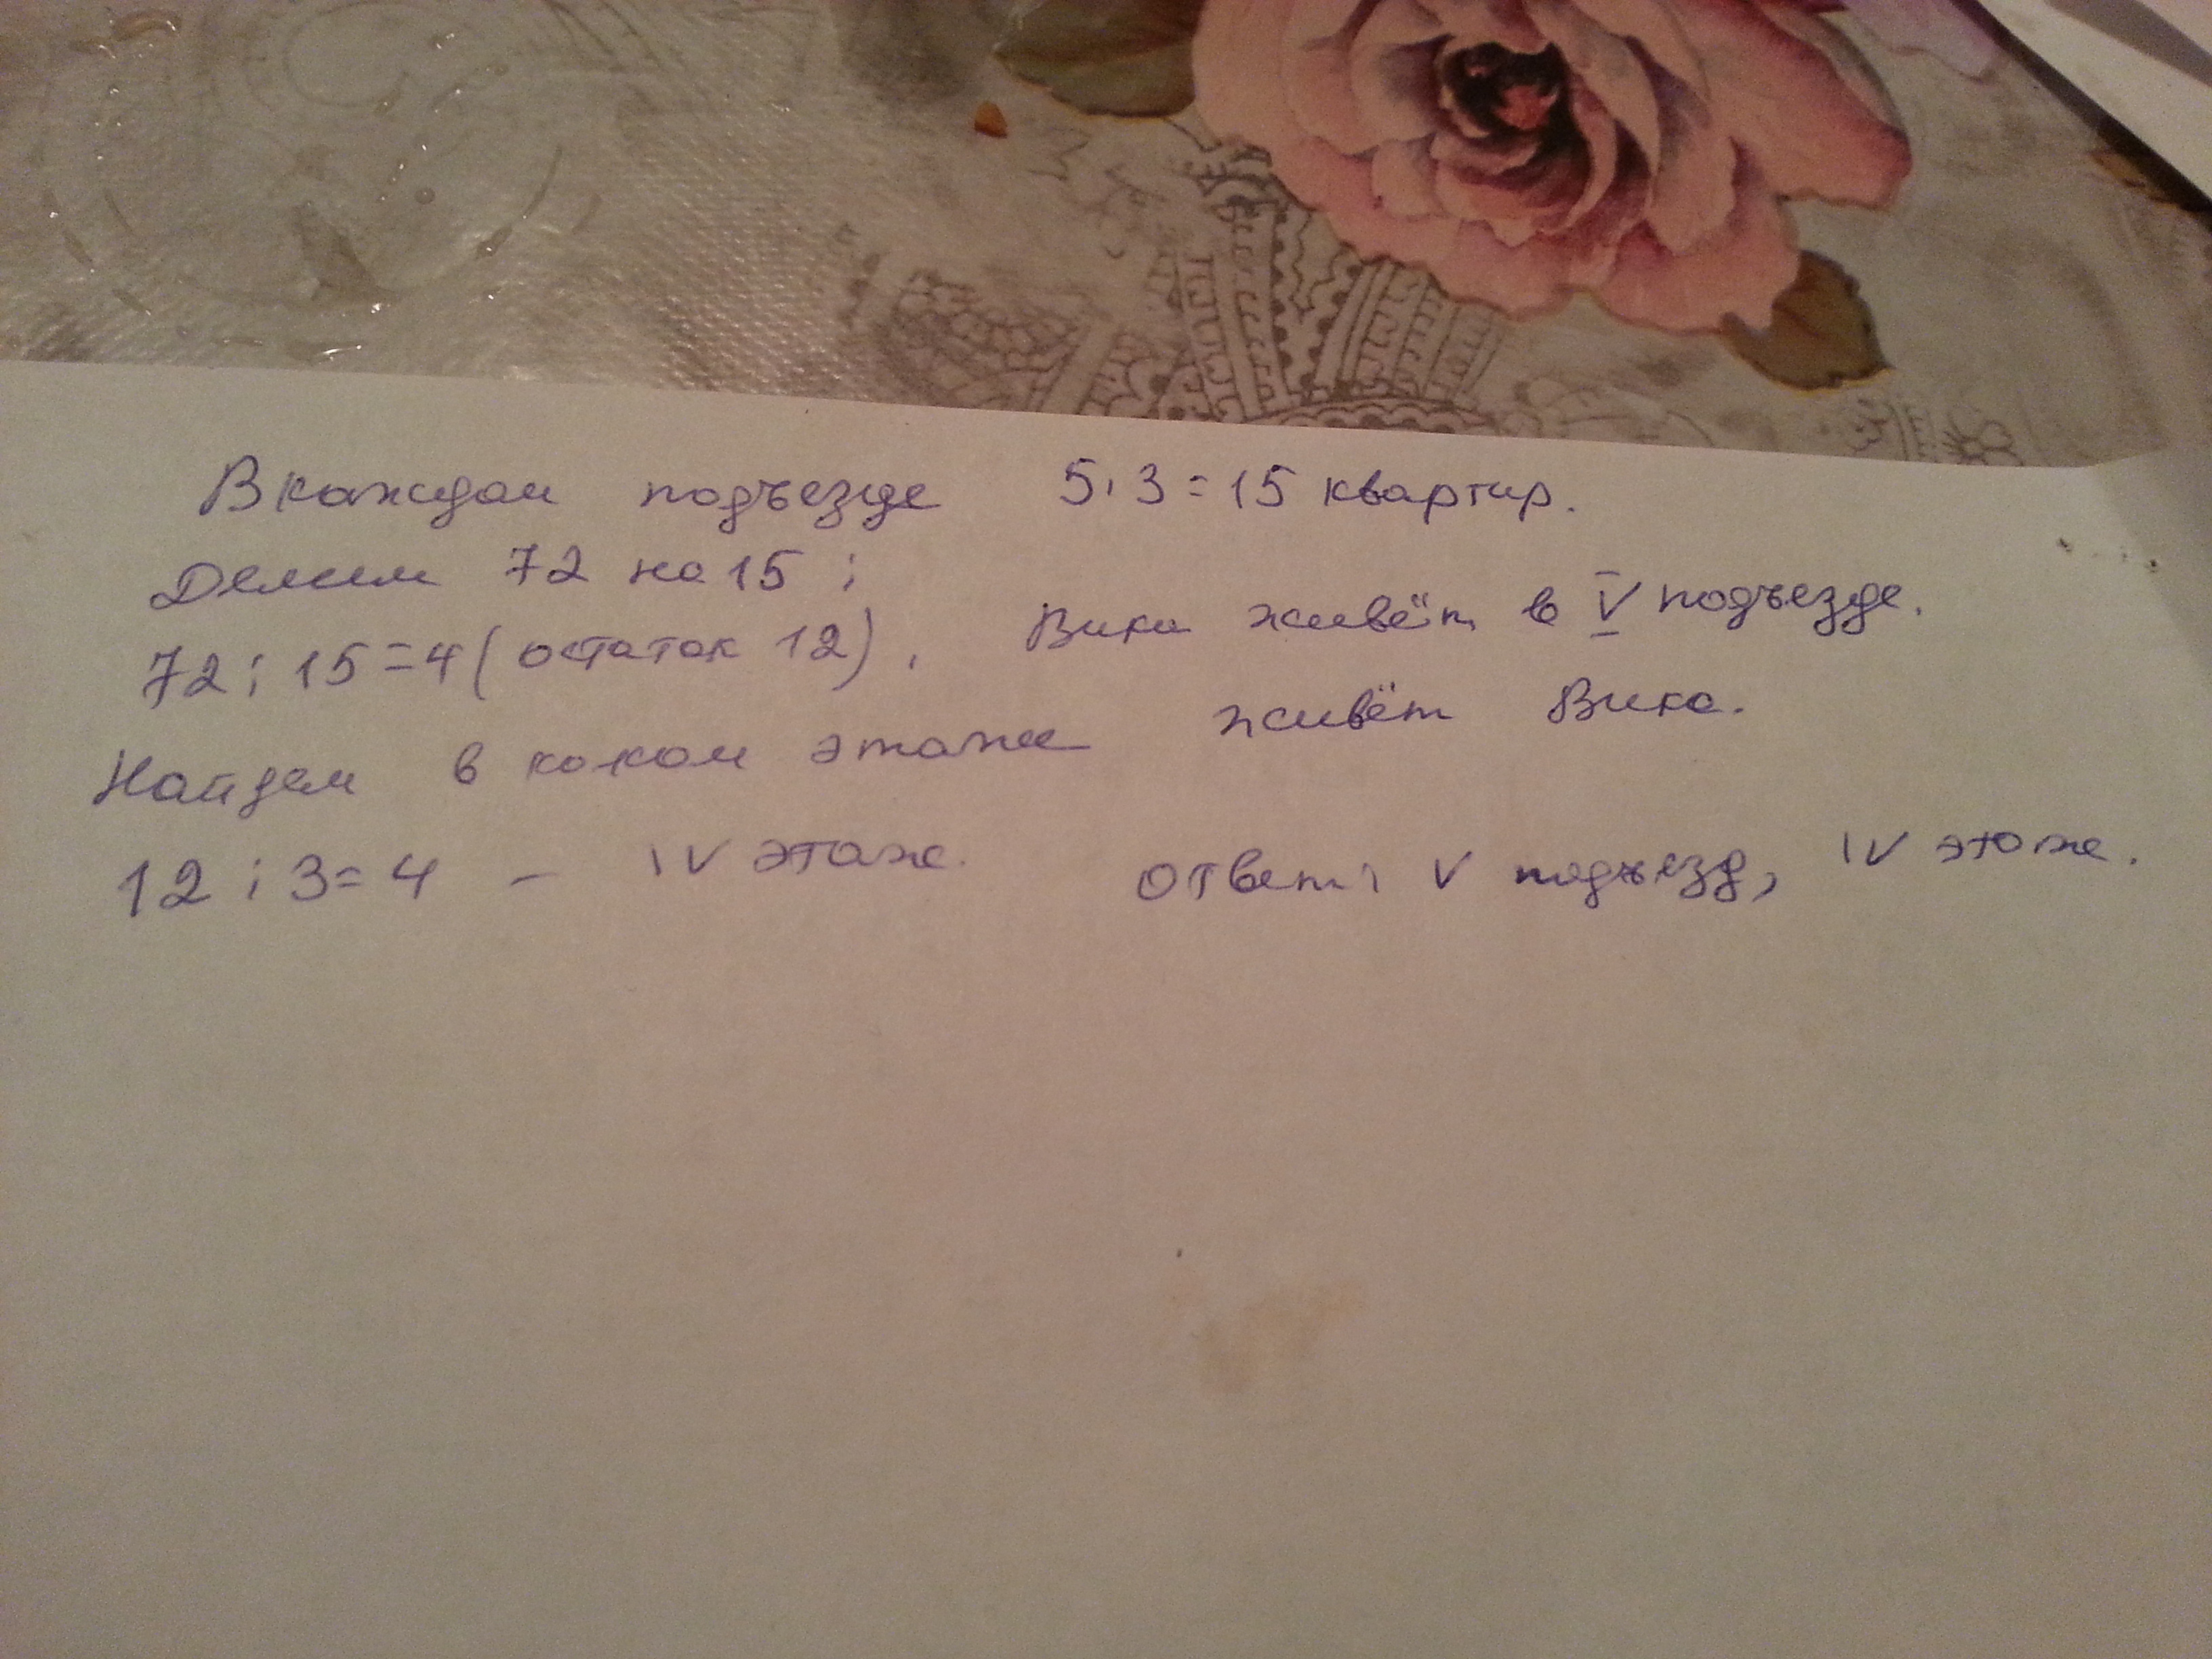 В каждом подъезде 5·3=15 квартир.
Делим 72 на 15:
72:15=4 (остаток 12). Вика живёт в V подъезде.
Найдем в каком этаже живёт Вика.
12:3=4 – IV этаж. Ответ: V подъезд, IV этаж.